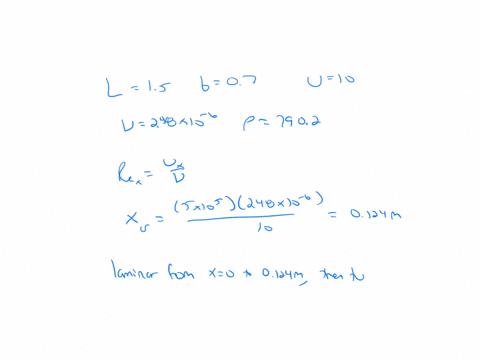 L = 1.5 b = 0.7 U = 10
ν = 2.48×10⁻⁶ ρ = 790.2
Reₓ = Uₓ/ν
X = (5×10⁵)(2.48×10⁻⁶)/10 = 0.124m
laminar from x=0 to 0.124m, then